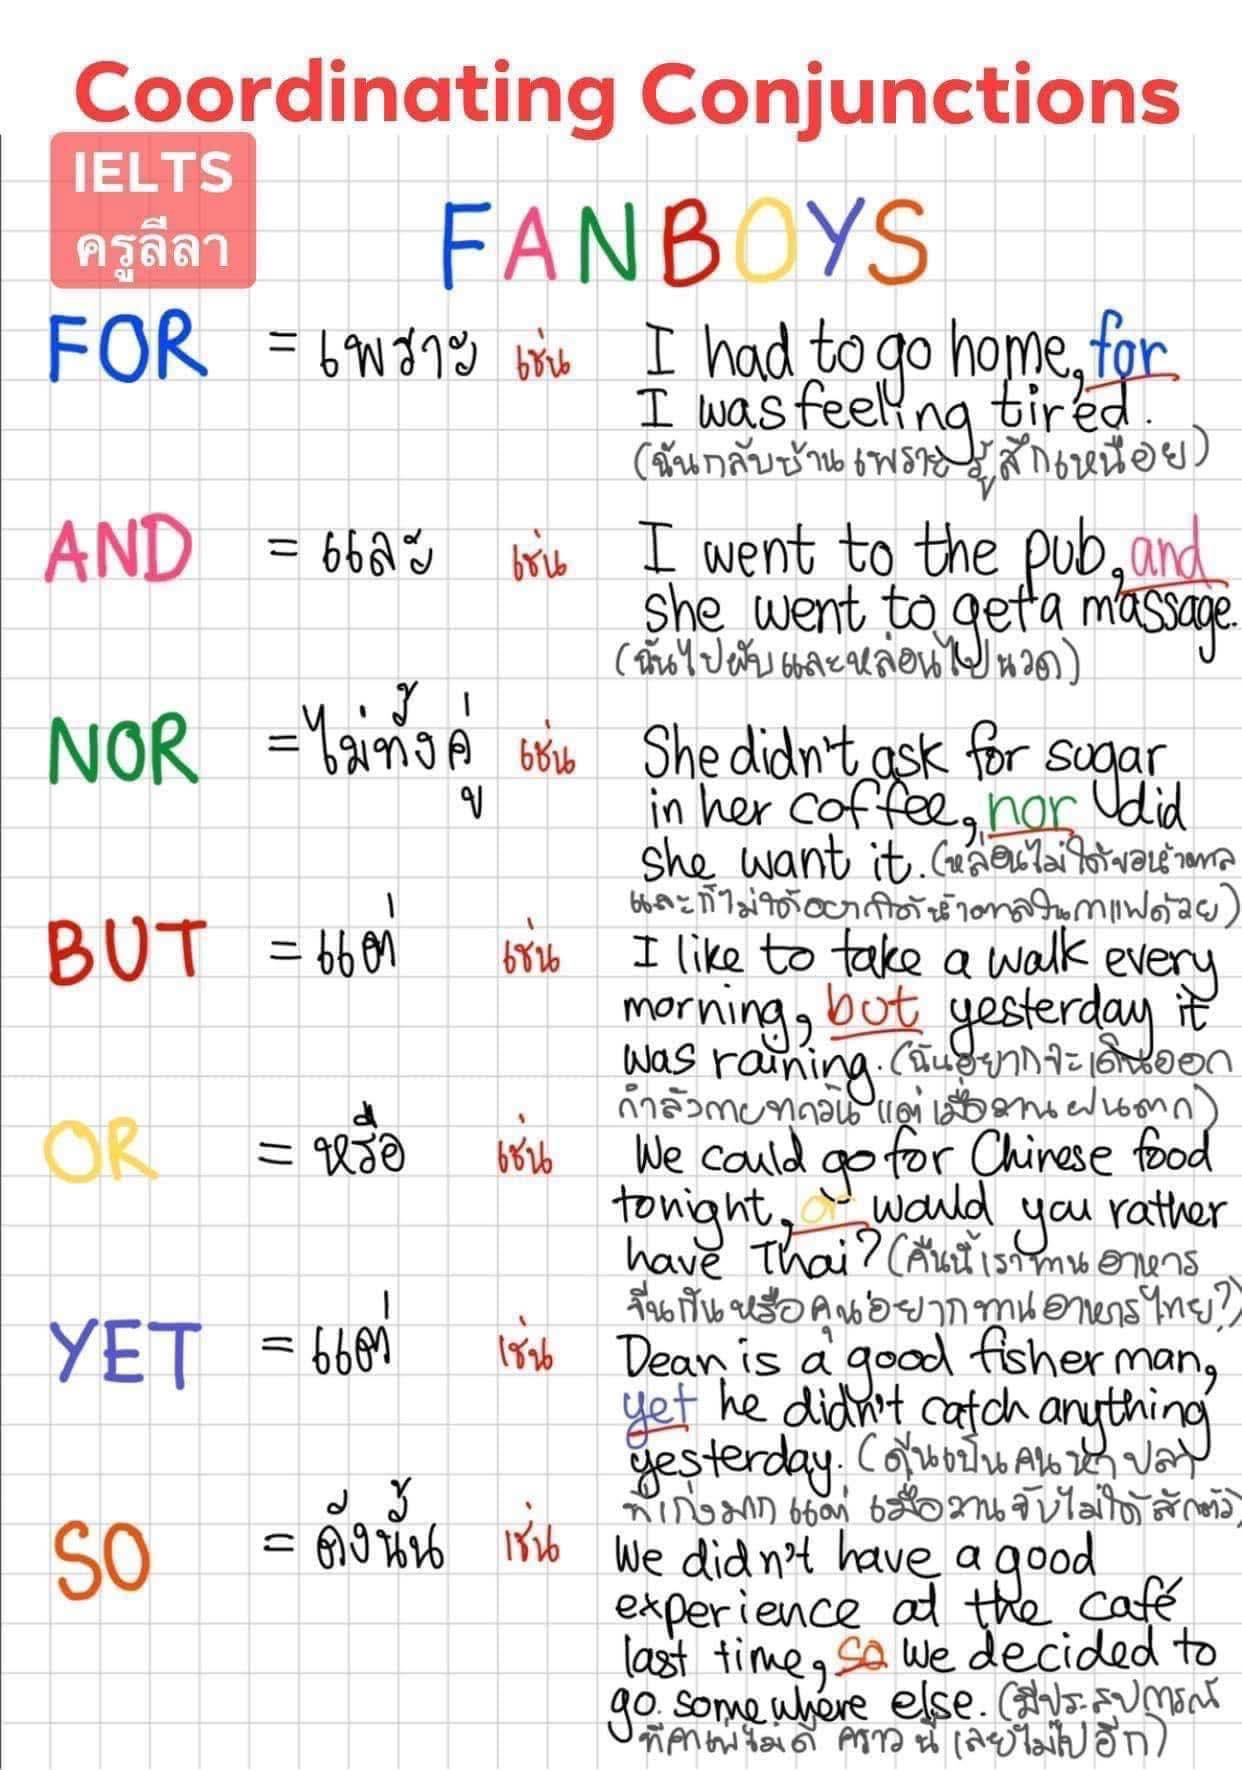 Coordinating Conjunctions
IELTS
ครูลีลา
FANBOYS
FOR = เพราะ เช่น I had to go home, for
I was feeling tired.
(ฉันกลับบ้านเพราะรู้สึกเหนื่อย)
AND = และ เช่น I went to the pub, and
she went to get a massage.
(ฉันไปผับและหล่อนไปนวด)
NOR = ไม่ทั้งคู่ เช่น She didn't ask for sugar
in her coffee, nor did
she want it. (หล่อนไม่ได้ขอน้ำตาล
และก็ไม่ได้อยากได้น้ำตาลในกาแฟด้วย)
BUT = แต่ เช่น I like to take a walk every
morning, but yesterday it
was raining. (ฉันอยากจะเดินออก
กำลังกายทุกวัน แต่เมื่อวานฝนตก)
OR = หรือ เช่น We could go for Chinese food
tonight, or would you rather
have Thai? (คืนนี้เราทานอาหาร
จีนกันหรือคุณอยากทานอาหารไทย?)
YET = แต่ เช่น Dean is a good fisher man,
yet he didn't catch anything
yesterday. (ดีนเป็นคนหาปลา
ที่เก่งมาก แต่ เมื่อวานจับไม่ได้สักตัว)
SO = ดังนั้น เช่น We didn't have a good
experience at the café
last time, so we decided to
go somewhere else. (มีประสบการณ์
ที่คาเฟ่ไม่ดี คราวนี้เลยไม่ไปอีก)